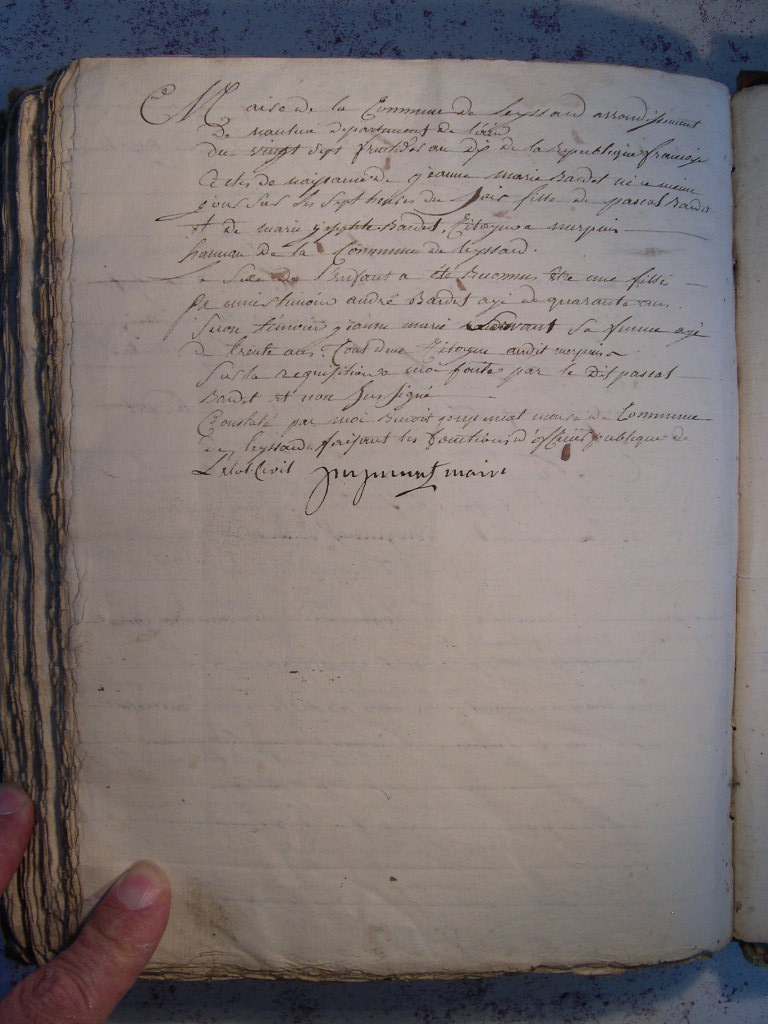 Mairie de la Commune de leyssard arrondissement
De nantua departement de l'ain
du vingt sept fructidor an dix de la republique francaise
Actes de naissance de jeanne marie Bardet né ce meme
jour sur les sept heures du soir fille de pascal Bardet
et de marie josephte Bardet, Citoyens a
hameau de la Commune de leyssard.
Le Sexe de l'Enfant a été Reconnus être une fille
Premier temoin andré Bardet agé de quarante ans
Secon témoin jeanne marie Sa femme agé
de trente ans. Tous deux Citoyens audit
Sur la requisition a moi faite par le dit pascal
Bardet et non Sus signé
Constaté par moi Benoit maire de Commune
de leyssard faisant les fonctions d'officier publique de
L'etat Civil maire